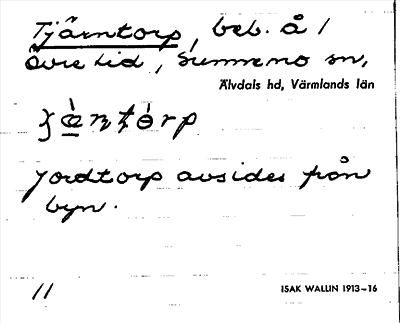 Tjärntorp, beb. å /
Övre lid, Sunnemo sn,
Älvdals hd, Värmlands län
jordtorp avsides från
byn.
11
ISAK WALLIN 1913-16